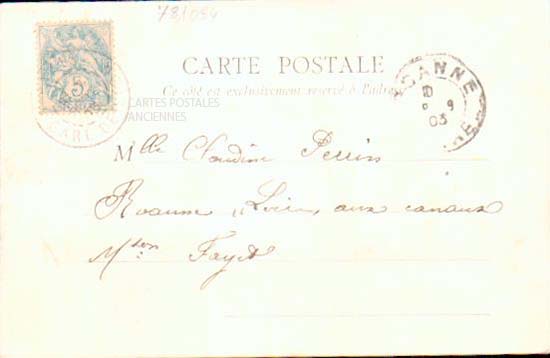 73/094
CARTE POSTALE
Ce côté est exclusivement réservé à l'adresse
5
GARE DE
ROANNE
9
03
CARTES POSTALES
ANCIENNES
Mlle Claudine Perrin
Roanne "Loire" aux canaux
Mson Fayet